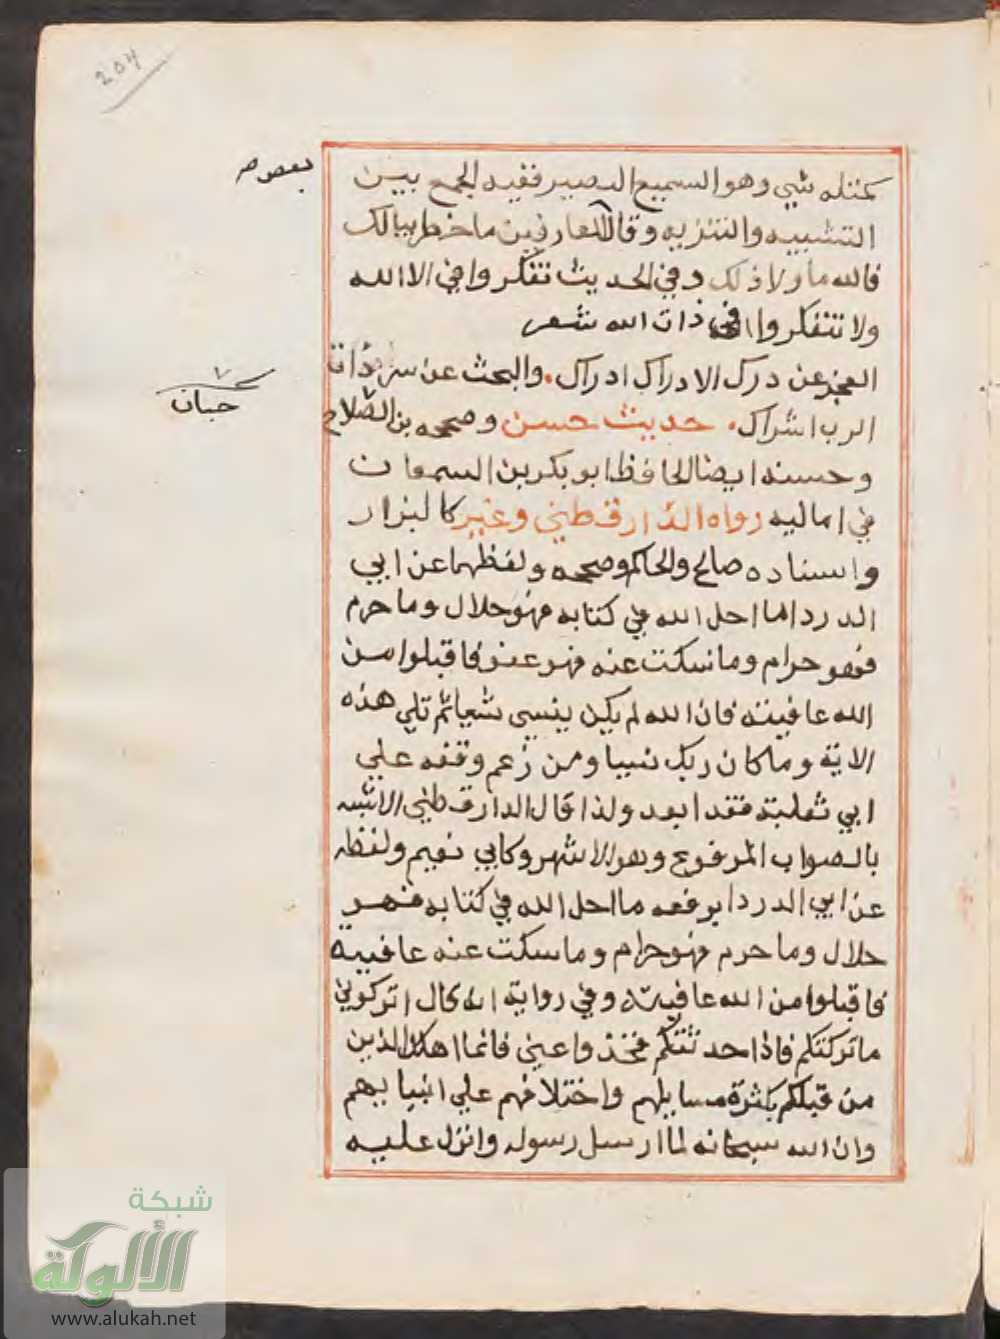 204
كمثله شي وهو السميع البصير ففيه الجمع بين
بعض
التشبيه والتنزيه وقال العارفين ما خطر ببالك
فالله ما ولا ذلك وفي الحديث تفكروا في الا الله
ولا تتفكروا في ذات الله شعر
العجز عن درك الادراك ادراك. والبحث عن سر ذات
الرب اشراك. حديث حسن وصححه بن الصلاح
حبان
وحسنه ايضا الحافظ ابو بكر بن السمعان
في اماليه رواه الدارقطني وغير كالبزار
واسناده صالح والحاكم وصححه ولفظهما عن ابي
الدردا ما احل الله في كتابه فهو حلال وما حرم
فهو حرام وما سكت عنه فهو عفو فاقبلوا من
الله عافيته فان الله لم يكن ينسى شيا ثم تلي هذه
الاية وما كان ربك نسيا ومن زعم وقفه علي
ابي ثعلبة فقد ابعد ولذا قال الدارقطني الاشبه
بالصواب المرفوع وهو الاشهر وكابي نعيم ولفظه
عن ابي الدردا يرفعه ما احل الله في كتابه فهو
حلال وما حرم فهو حرام وما سكت عنه عافية
فاقبلوا من الله عافيته وفي رواية انه قال اتركوني
ما تركتكم فاذا حدثتكم فخذوا عني فانما اهلك الذين
من قبلكم بكثرة مسايلهم واختلافهم علي انبيايهم
وان الله سبحانه لما ارسل رسوله وانزل عليه
شبكة
الألوكة
www.alukah.net